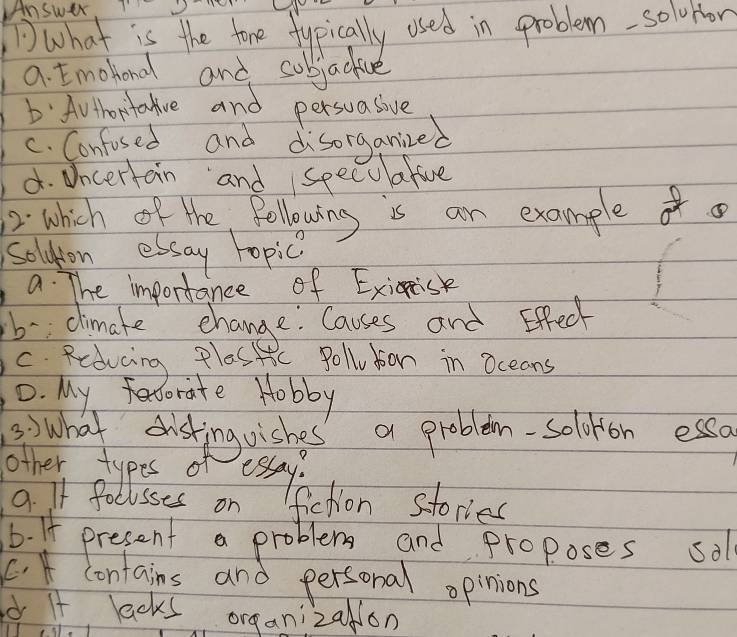 Answer the
1.) What is the tone typically used in problem - solution
a. Emotional and subjactive
b. Authoritative and persuasive
c. Confused and disorganized
d. Uncertain and speculative
2. which of the following is an example of a
solution essay topic?
a. The importance of
b. climate change: Causes and Effect
C. Reducing Plastic Pollution in Oceans
D. My favorate Hobby
3.) What distinguishes a problem - solution essa
other types of essay?
a. It focusses on fiction stories
b. It present a problem and proposes sol
c. It contains and personal opinions
d. It lacks organization